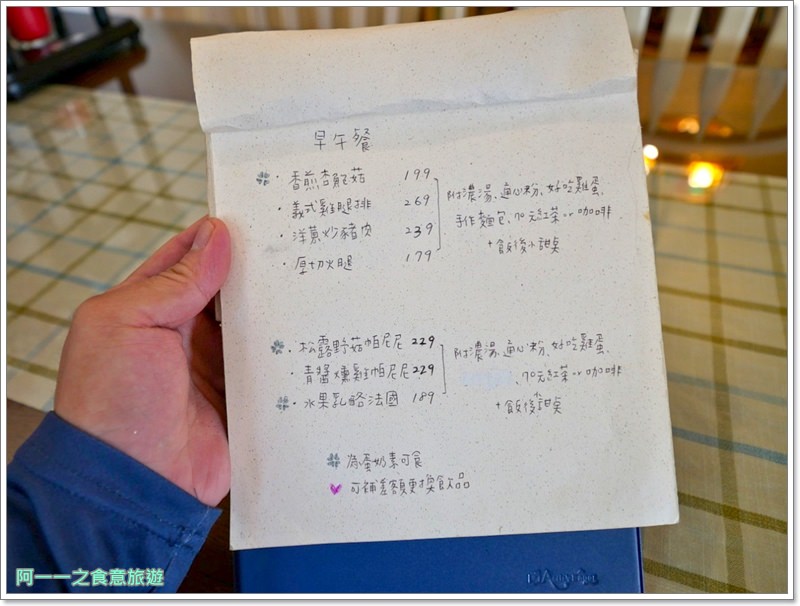 早午餐
・香煎杏鮑菇 199
・義式雞腿排 269
・洋蔥炒豬肉 239
・厚切火腿 179
附濃湯、通心粉、好吃雞蛋、
手作麵包、70元紅茶or咖啡
+飯後小甜點
・松露野菇帕尼尼 229
・青醬燻雞帕尼尼 229
・水果乳酪法國 189
附濃湯、通心粉、好吃雞蛋、
、70元紅茶or咖啡
+飯後小甜點
為蛋奶素可食
可補差額更換飲品
阿一一之食意旅遊